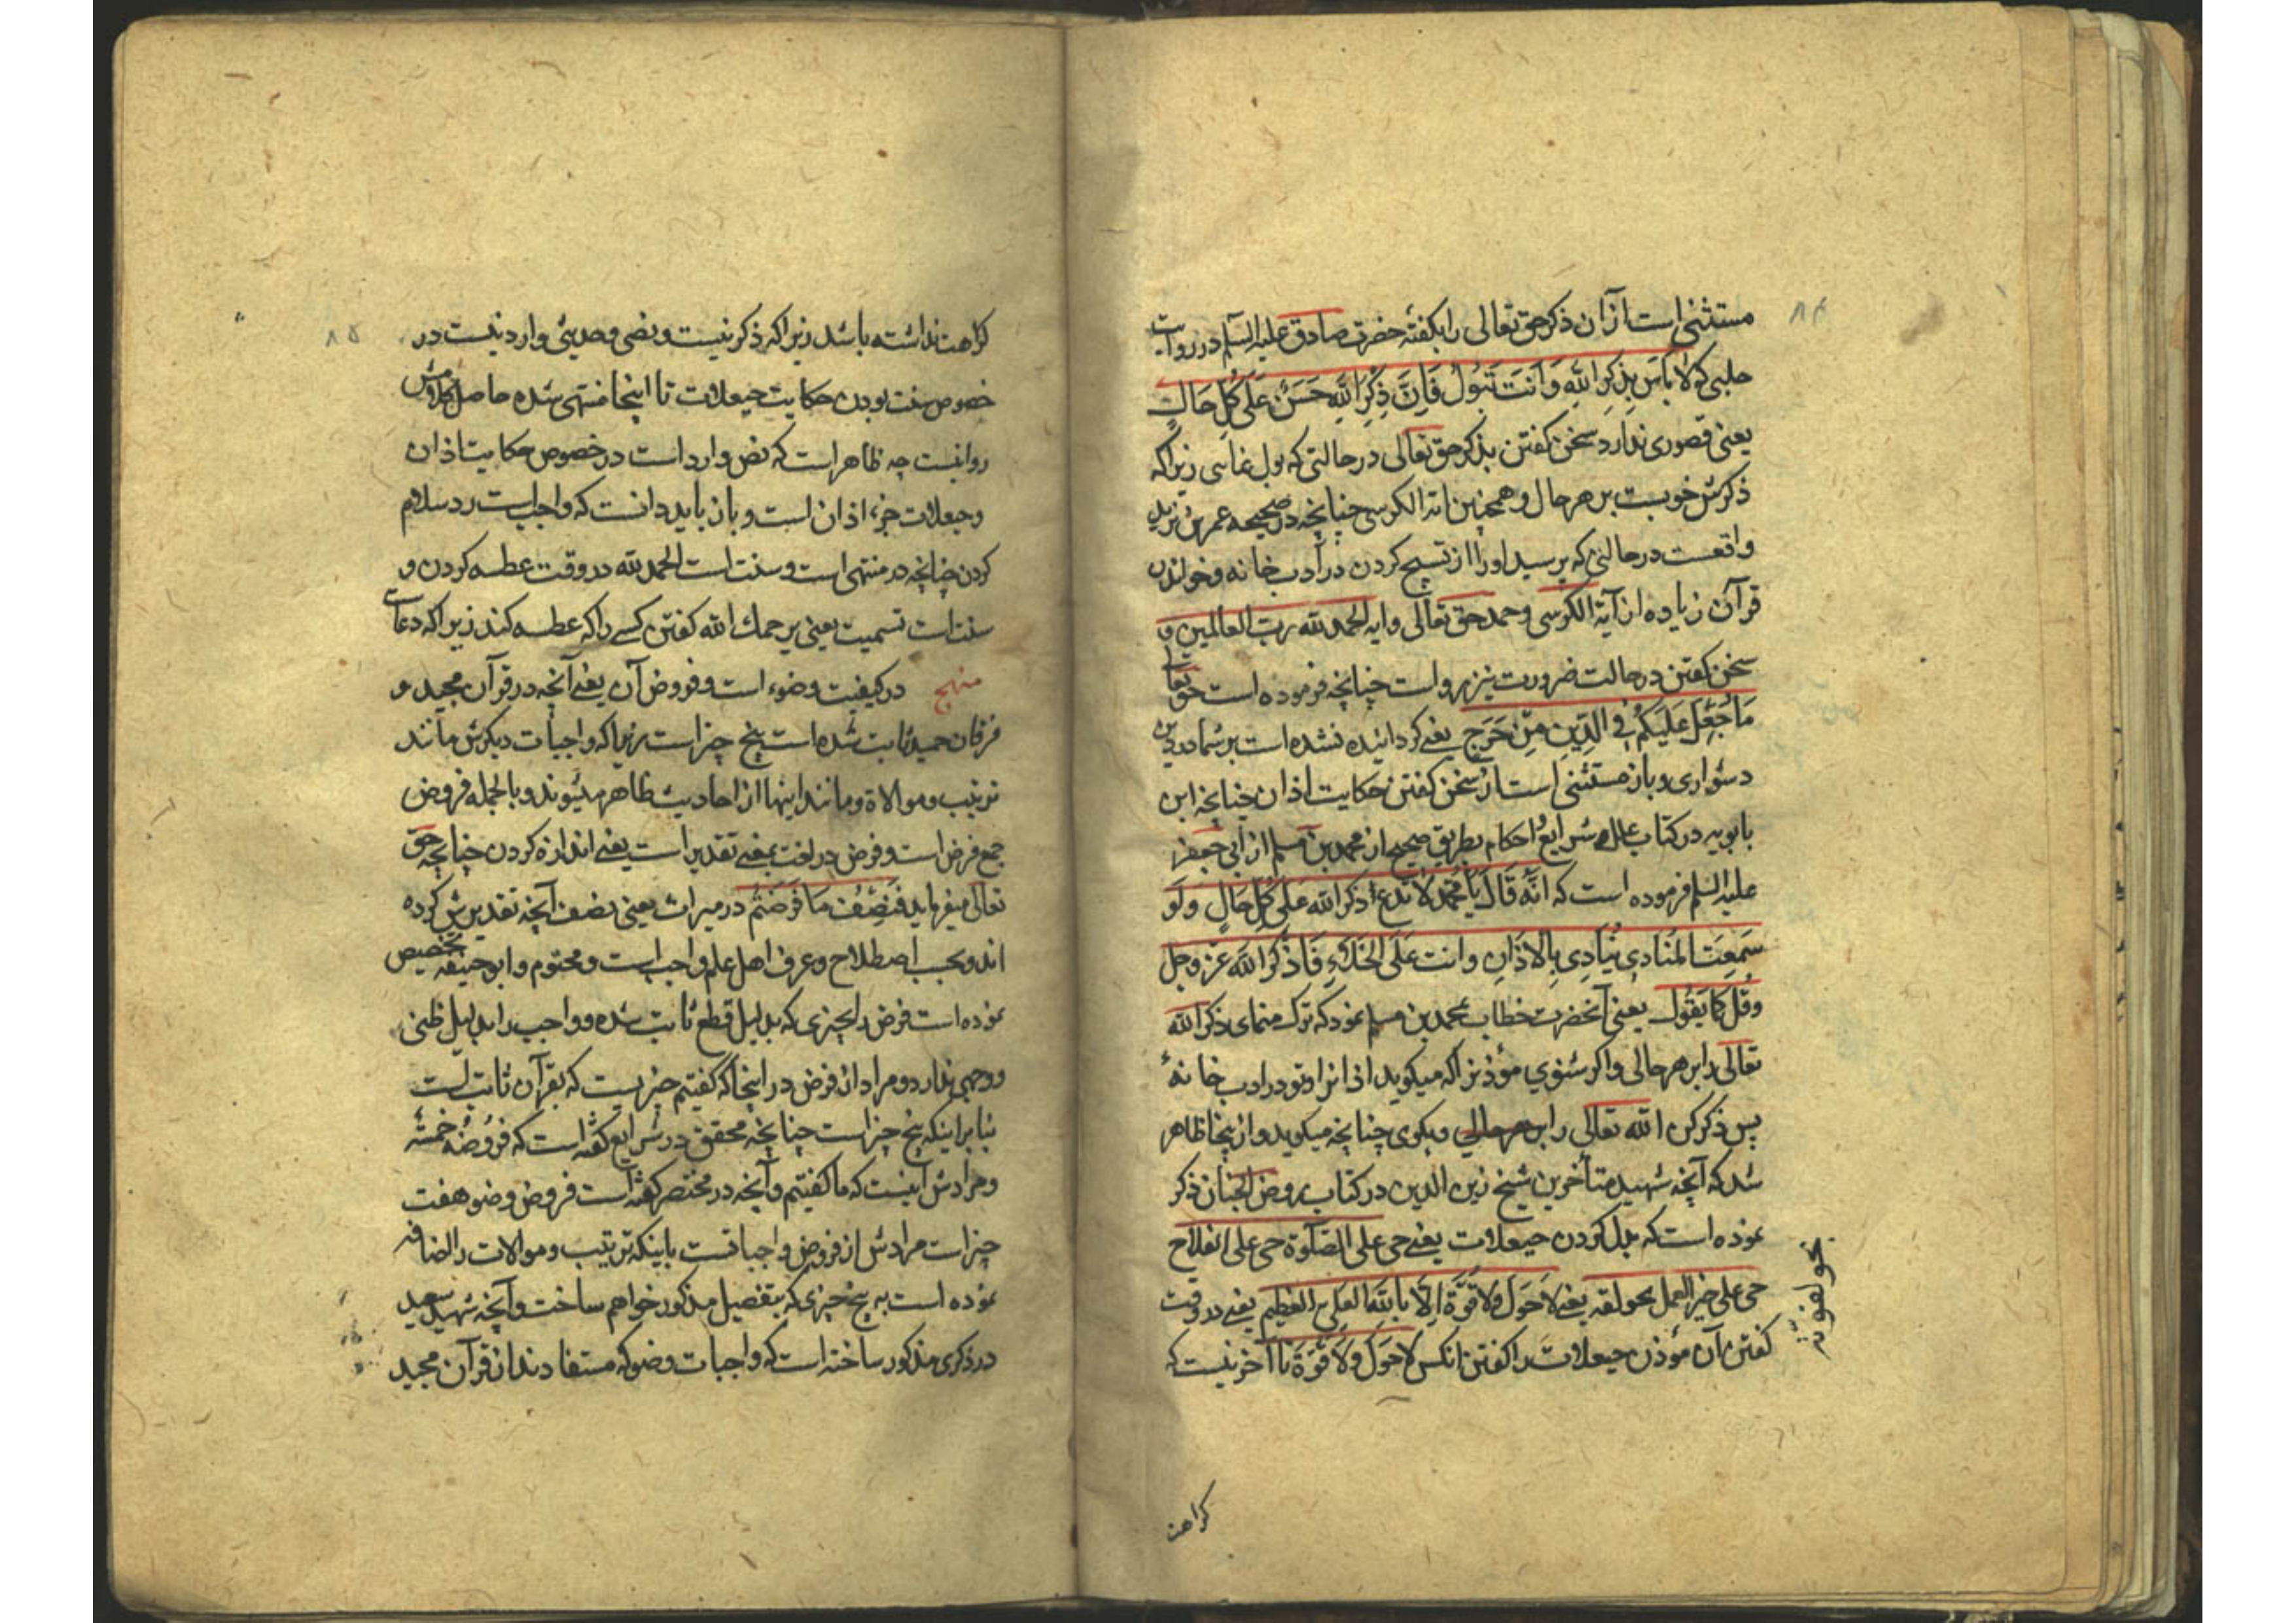 ۸۴
مستثنی است از آن ذکر حق تعالی را بکفتهٔ حضرت صادق علیه السلام در روایت
حلبی که لا بَأسَ بِذِکرِ اللّهِ وَ اَنتَ تَبُولُ فَاِنَّ ذِکرَ اللّهِ حَسَنٌ عَلَی کُلِّ حَالٍ
یعنی قصوری ندارد سخن کفتن بذکر حق تعالی در حالتی که بول نمائی زیرا که
ذکرش خوبست بر هر حال و همچنین آیة الکرسی چنانچه در صحیحه عمر بن یزید
واقعست در حالتی که پرسید اورا از تسبیح کردن در ادب خانه و خواندن
قرآن زیاده از آیة الکرسی و حمد حق تعالی و ایه الحمد لله رب العالمین و
سخن کفتن در حالت ضرورت نیز رواست چنانچه فرموده است حق تعا
مَا جُعِلَ عَلَیکُم فِی الدِّینِ مِن حَرَجٍ یعنی کردانیده نشده است بر شما در دین
دشواری و باز مستثنی است از سخن کفتن حکایت اذان چنانچه ابن
بابویه در کتاب علل شرایع و احکام بطریق صحیح از محمد بن مسلم از ابی جعفر
علیه السلم فرموده است که انَّه قَالَ یَا مُحَمد لا تدع ذکر الله عَلَی کُلِّ حَالٍ وَ لَو
سَمِعتَ المُنَادِی یُنَادِی بِالاذَانِ وانت عَلَی الخَلَاءِ فَاذکُر اللّهَ عَزَّ وجل
وقُل کما یَقُول یعنی آنحضرت خطاب بمحمد بن مسلم نمود که ترک منمای ذکر الله
تعالی را بر هر حالی و اکر شنوی مؤذنرا که میکوید اذانرا و تو در ادب خانهٔ
پس ذکر کن الله تعالی را بر هر حالی و بکوی چنانچه میکوید و از ینجا ظاهر
شد که آنچه شهید متأخرین شیخ زین الدین در کتاب روض الجنان ذکر
نموده است که بدل کردن حیعلات یعنی حی علی الصلوة حی علی الفلاح
حی علی خیر العمل بحولقه یعنی لاحَولَ ولا قُوَّةَ اِلّا بِاللّهِ العَلِیِّ العَظِیمِ یعنی در وقت
کفتن آن مؤذن حیعلات را کفتن انکس لاحَولَ ولا قُوَّةَ تا آخر نیست که
کراهت
۸۵
کراهت نداشته باشد زیرا که ذکر نیست و نصی و حدیثی وارد نیست در
خصوص سنت بودن حکایت حیعلات تا اینجا منتهی شده حاصل کلامش
روا نیست چه ظاهر است که نص وارد است در خصوص حکایت اذان
وحیعلات جزء اذان است و باز باید دانست که واجبست رد سلام
کردن چنانچه در منتهی است و سنت است الحمد لله در وقت عطسه کردن و
سنت است تسمیت یعنی یرحمک الله کفتن کسی را که عطسه کند زیرا که دعاست
منهج در کیفیت وضوء است و فروض آن یعنی آنچه در قرآن مجید و
فرقان حمید ثابت شده است پنج چیز است زیرا که واجبات دیکرش مانند
ترتیب و موالاة و مانند اینها از احادیث ظاهر میشوند و بالجمله فروض
جمع فرض است و فرض در لغت بمعنی تقدیر است یعنی اندازه کردن چنانچه حق
تعالی میفرماید فَنِصفُ مَا فَرَضتُم در میراث یعنی نصف آنچه تقدیرش کرده
اند و بحسب اصطلاح و عرف اهل علم واجب است و محتوم و ابوحنیفه تخصیص
نموده است فرض را بچیزی که بدلیل قطع ثابت شده و واجب را بدلیل ظنی
ووجهی ندارد و مراد از فرض در اینجا که کفتیم چیزیست که بقرآن ثابت است
بنا بر اینکه پنج چیز است چنانچه محقق در شرایع کفته است که فروضه خمسة
و مرادش اینست که ما کفتیم و آنچه در مختصر کفته است فروض وضو هفت
چیز است مرادش از فروض واجباتست باینکه ترتیب و موالات را اضافه
نموده است به پنج چیزی که بتفصیل مذکور خواهم ساخت و آنچه شهید سعید
در ذکری مذکور ساخته است که واجبات وضو که مستفادند از قرآن مجید